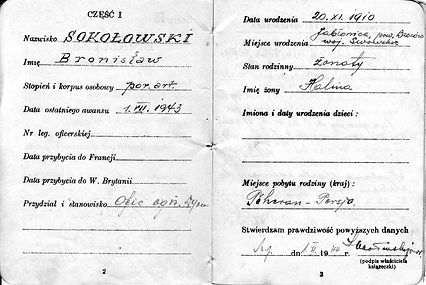 CZĘŚĆ I
Nazwisko SOKOŁOWSKI
Imię Bronisław
Stopień i korpus osobowy por. art.
Data ostatniego awansu 1.III.1943
Nr leg. oficerskiej
Data przybycia do Francji
Data przybycia do W. Brytanii
Przydział i stanowisko Ofic. ogn.
2
Data urodzenia 20.XI.1910
Jabłonica, pow. Brzozów
Miejsce urodzenia woj. Lwowskie
Stan rodzinny żonaty
Imię żony Halina
Imiona i daty urodzenia dzieci:
Miejsce pobytu rodziny (kraj):
Teheran - Persja
Stwierdzam prawdziwość powyższych danych
dn. 19 r.
(podpis właściciela
książeczki)
3